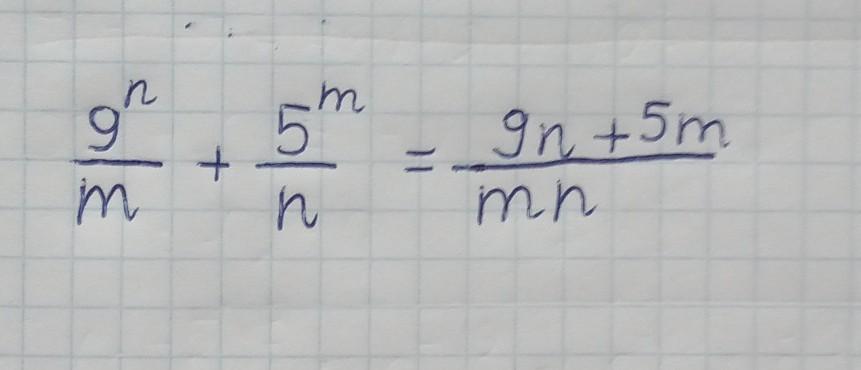 9^n/m + 5^m/n = (9n + 5m)/(mn)